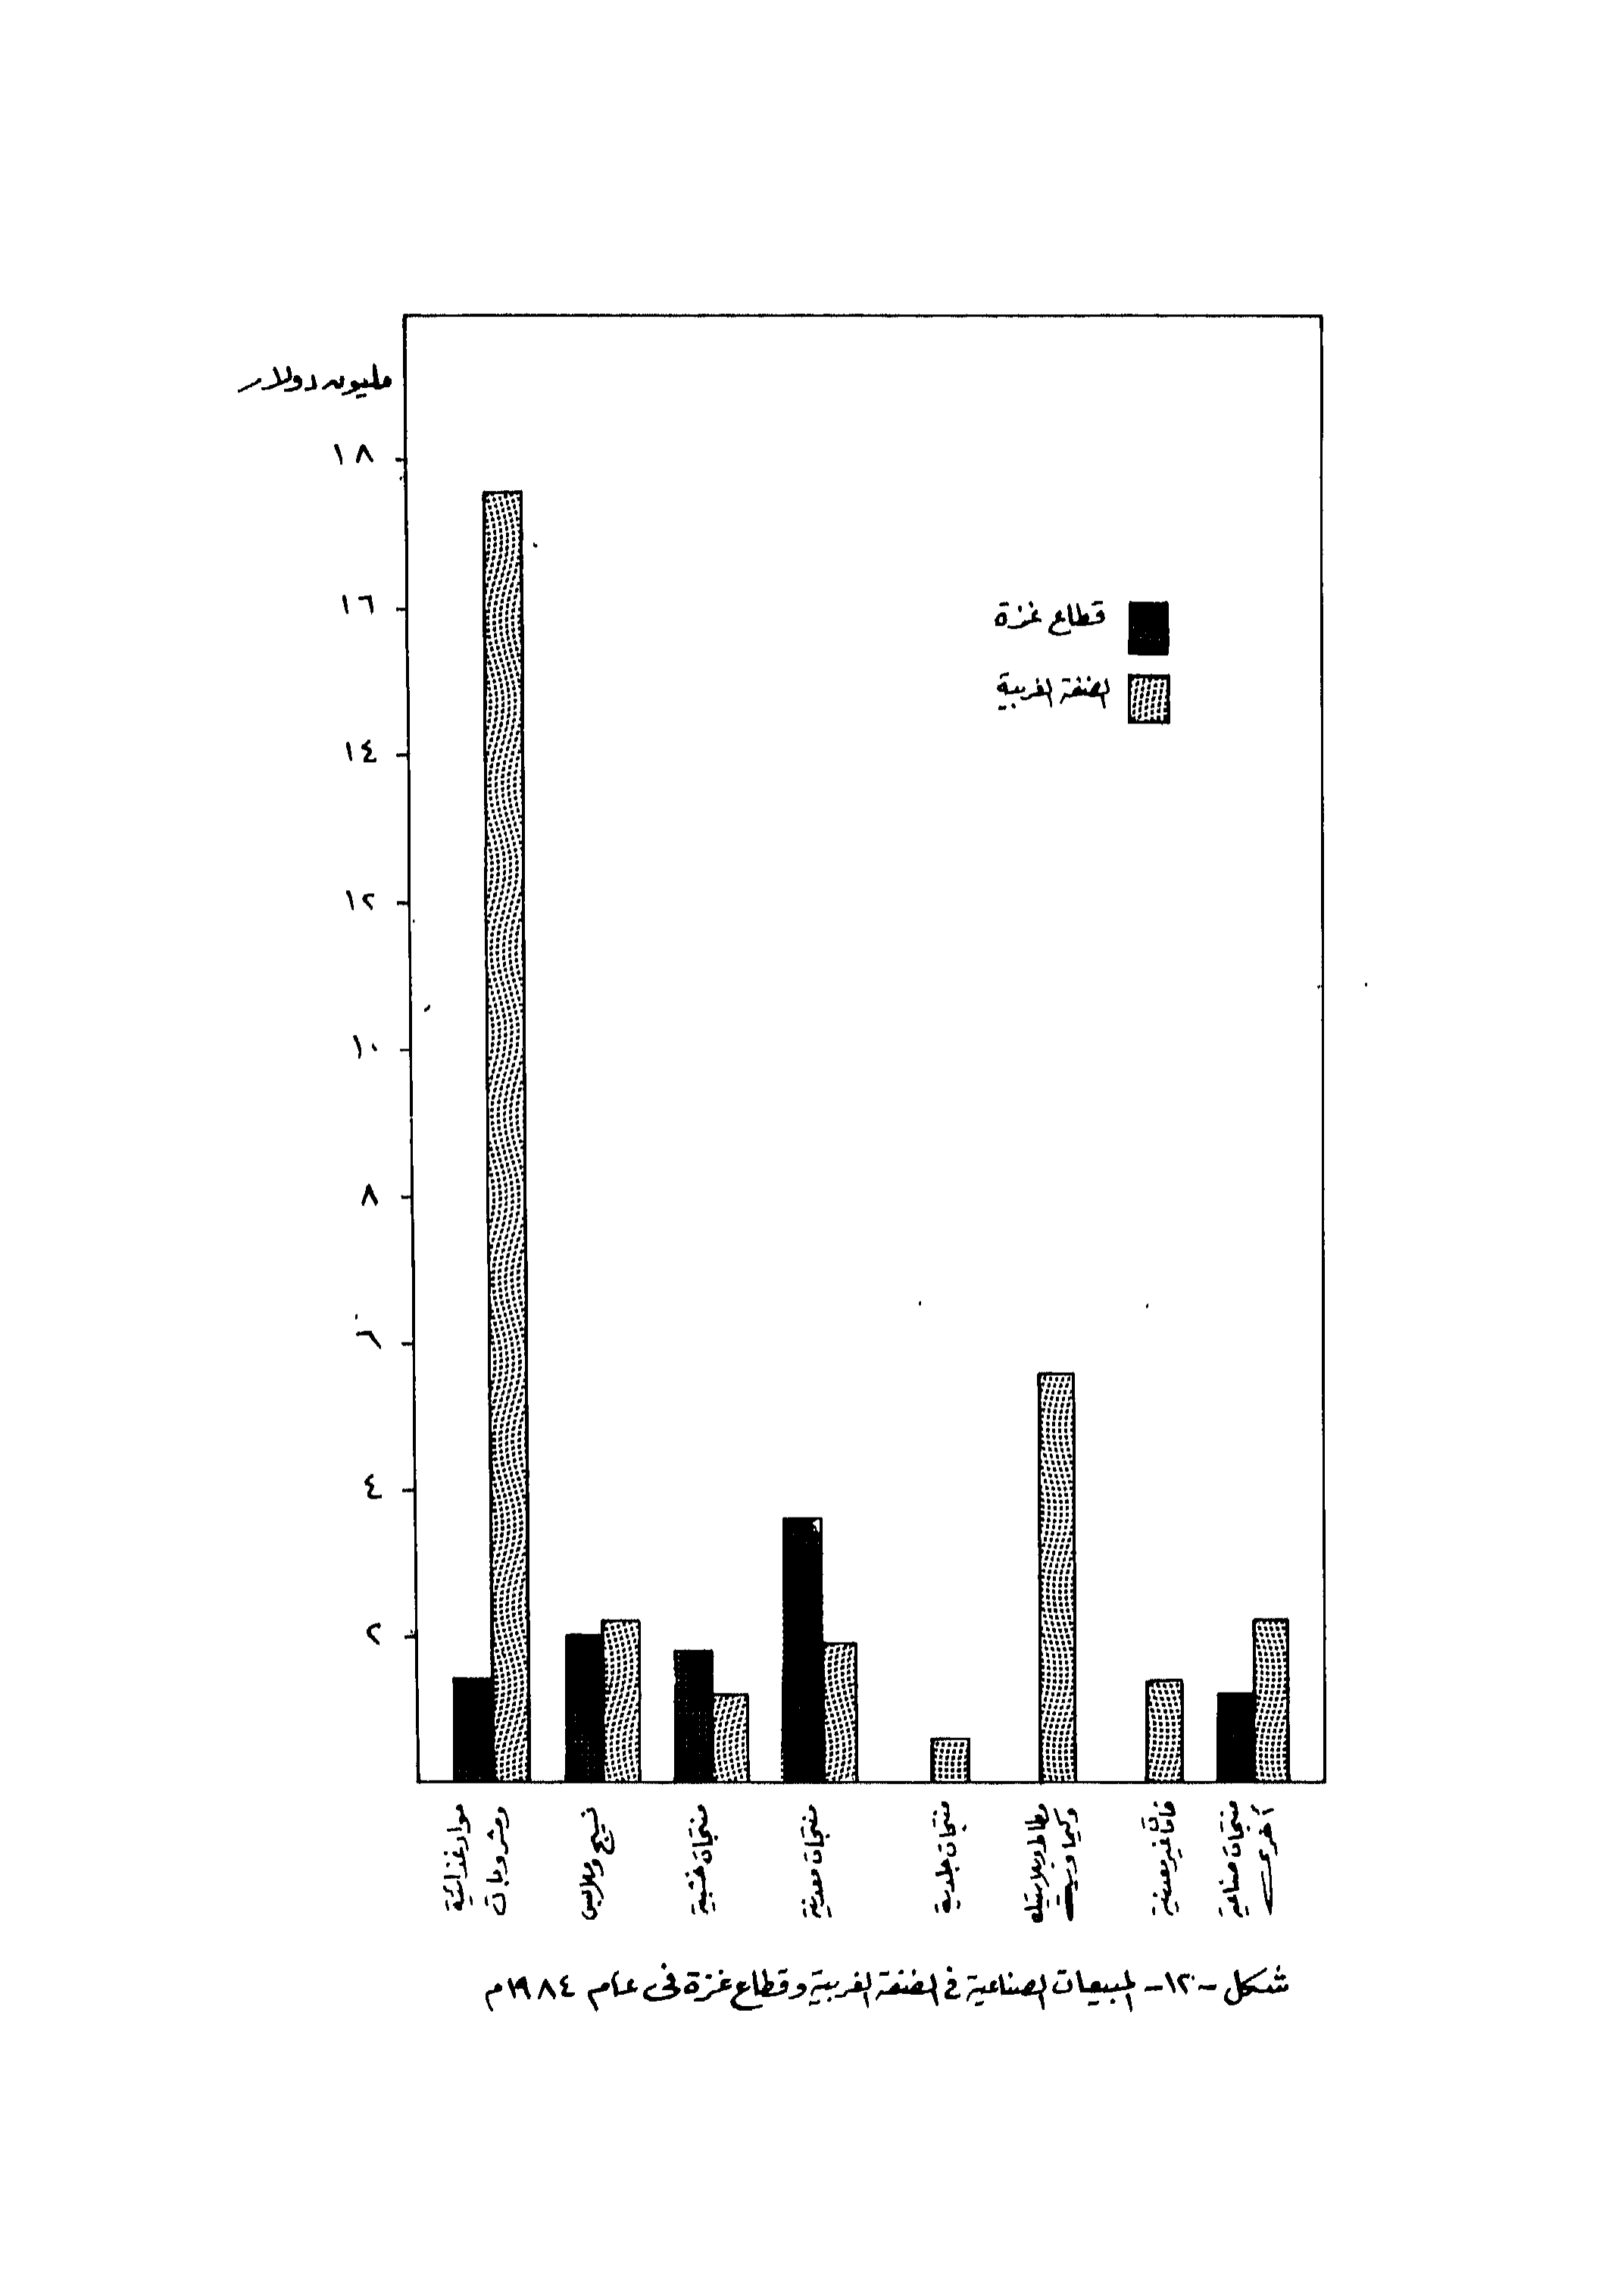 مليون دولار
١٨
١٦
١٤
١٢
١٠
٨
٦
٤
٢
قطاع غزة
الضفة الغربية
مواد غذائية
ومشروبات
نسيج وملابس
منتجات خشبية
منتجات معدنية
منتجات جلدية
مطاط وبلاستيك
وكيماويات
خامات غير معدنية
منتجات صناعية
أخرى
شكل -١٢- المبيعات الصناعية في الضفة الغربية وقطاع غزة في عام ١٩٨٤م